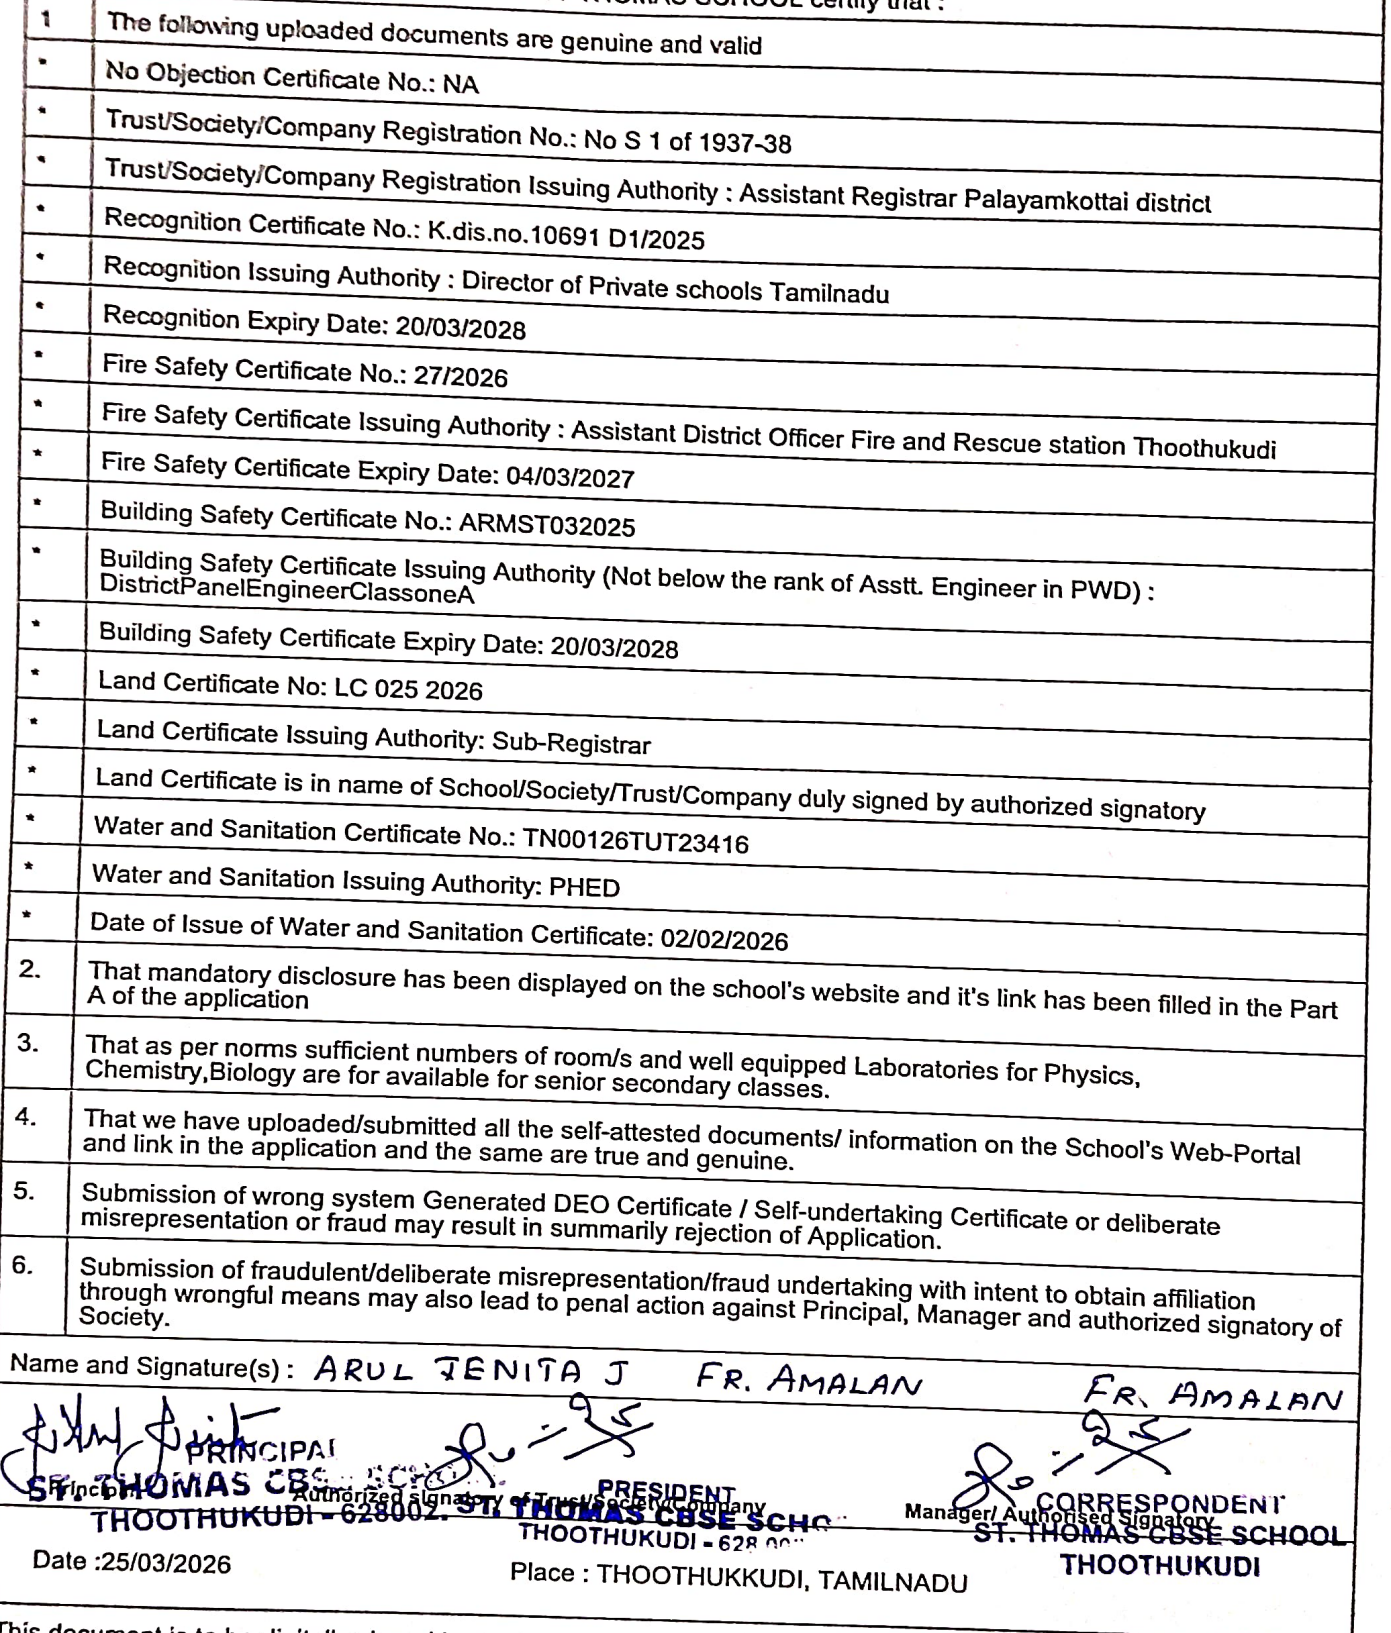 THOMAS SCHOOL certify that :
1 The following uploaded documents are genuine and valid
* No Objection Certificate No.: NA
* Trust/Society/Company Registration No.: No S 1 of 1937-38
* Trust/Society/Company Registration Issuing Authority : Assistant Registrar Palayamkottai district
* Recognition Certificate No.: K.dis.no.10691 D1/2025
* Recognition Issuing Authority : Director of Private schools Tamilnadu
* Recognition Expiry Date: 20/03/2028
* Fire Safety Certificate No.: 27/2026
* Fire Safety Certificate Issuing Authority : Assistant District Officer Fire and Rescue station Thoothukudi
* Fire Safety Certificate Expiry Date: 04/03/2027
* Building Safety Certificate No.: ARMST032025
* Building Safety Certificate Issuing Authority (Not below the rank of Asstt. Engineer in PWD) :
DistrictPanelEngineerClassoneA
* Building Safety Certificate Expiry Date: 20/03/2028
* Land Certificate No: LC 025 2026
* Land Certificate Issuing Authority: Sub-Registrar
* Land Certificate is in name of School/Society/Trust/Company duly signed by authorized signatory
* Water and Sanitation Certificate No.: TN00126TUT23416
* Water and Sanitation Issuing Authority: PHED
* Date of Issue of Water and Sanitation Certificate: 02/02/2026
2. That mandatory disclosure has been displayed on the school's website and it's link has been filled in the Part
A of the application
3. That as per norms sufficient numbers of room/s and well equipped Laboratories for Physics,
Chemistry,Biology are for available for senior secondary classes.
4. That we have uploaded/submitted all the self-attested documents/ information on the School's Web-Portal
and link in the application and the same are true and genuine.
5. Submission of wrong system Generated DEO Certificate / Self-undertaking Certificate or deliberate
misrepresentation or fraud may result in summarily rejection of Application.
6. Submission of fraudulent/deliberate misrepresentation/fraud undertaking with intent to obtain affiliation
through wrongful means may also lead to penal action against Principal, Manager and authorized signatory of
Society.
Name and Signature(s) : ARUL JENITA J FR. AMALAN FR. AMALAN
PRINCIPAL
ST. THOMAS CBS
THOOTHUKUDI - 628002.
Principal
Authorized signatory of Trust/Society/Company
PRESIDENT
ST. THOMAS CBSE SCHO
THOOTHUKUDI - 628
Manager/ Authorised Signatory
CORRESPONDENT
ST. THOMAS CBSE SCHOOL
THOOTHUKUDI
Date :25/03/2026
Place : THOOTHUKKUDI, TAMILNADU
This document is to be